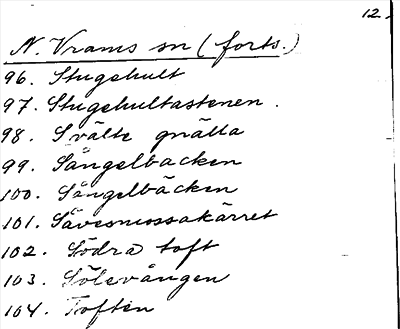 12.
N. Vrams sn (forts.)
96. Stugehult
97. Stugehultastenen.
98. Svälte gnälla
99. Sångelbacken
100. Sångelbäcken
101. Sävesmossakärret
102. Södra toft
103. Sölevången
104. Toften